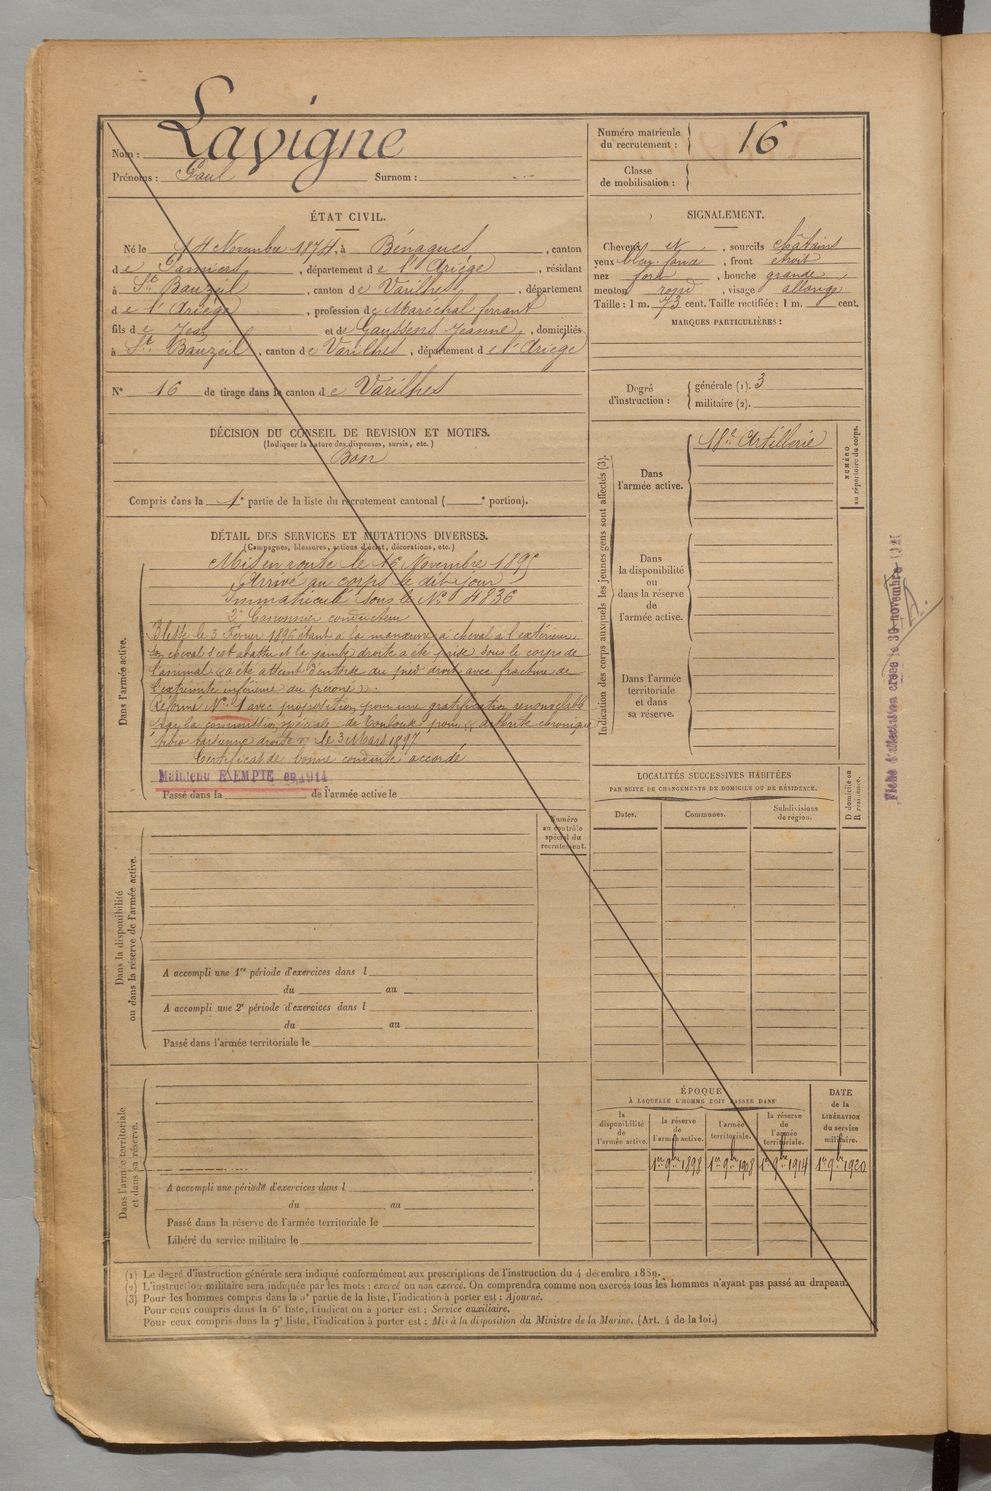 Nom : Lavigne
Prénoms : Paul Surnom :
Numéro matricule du recrutement : 16
Classe de mobilisation :
ÉTAT CIVIL.
Né le 14 Novembre 1874, à Bénagues, canton
de Pamiers, département de l'Ariége, résidant
à St Bauzeil, canton de Varilhes, département
de l'Ariége, profession de Maréchal ferrant
fils de Jean et de Gaussens Jeanne, domiciliés
à St Bauzeil, canton de Varilhes, département de l'Ariége
N° 16 de tirage dans le canton de Varilhes
DÉCISION DU CONSEIL DE REVISION ET MOTIFS.
(Indiquer la nature des dispenses, sursis, etc.)
Bon
Compris dans la 1e partie de la liste du recrutement cantonal ( e portion).
SIGNALEMENT.
Cheveux et , sourcils châtains
yeux , front étroit
nez fort , bouche grande
menton rond , visage allongé
Taille : 1 m. 73 cent. Taille rectifiée : 1 m. cent.
MARQUES PARTICULIÈRES :
Degré d'instruction : générale (1). 3
militaire (2).
DÉTAIL DES SERVICES ET MUTATIONS DIVERSES.
(Campagnes, blessures, actions d'éclat, décorations, etc.)
Dans l'armée active.
Mis en route le 16 Novembre 1895
Arrivé au corps le dit jour
Immatriculé sous le N° 4836
2e Canonnier conducteur
Blessé le 3 Février 1896 étant à la manœuvre à cheval à l'extérieur
son cheval s'est abattu et la jambe droite a été prise sous le corps de
l'animal « a été atteint d'entorse du pied droit avec fracture de
l'extrémité inférieure du péroné ».
Réformé N° 1 avec proposition pour une gratification renouvelable
par la commission spéciale de Toulouse pour « arthrite chronique
tibio tarsienne droite » le 3 Mars 1897
Certificat de bonne conduite accordé
Maintenu EXEMPTÉ en 1914
Passé dans la de l'armée active le
Indication des corps auxquels les jeunes gens sont affectés (3).
Dans l'armée active.
18e Artillerie
NUMÉRO au répertoire du corps.
Dans la disponibilité ou dans la réserve de l'armée active.
Dans l'armée territoriale et dans sa réserve.
Fiche d'affectation créée le 30 novembre
LOCALITÉS SUCCESSIVES HABITÉES
PAR SUITE DE CHANGEMENTS DE DOMICILE OU DE RÉSIDENCE.
Dates. Communes. Subdivisions de région.
D domicile ou R résidence.
Numéro au contrôle spécial du recrutement.
Dans la disponibilité ou dans la réserve de l'armée active.
A accompli une 1re période d'exercices dans l
du au
A accompli une 2e période d'exercices dans l
du au
Passé dans l'armée territoriale le
Dans l'armée territoriale et dans sa réserve.
A accompli une période d'exercices dans l
du au
Passé dans la réserve de l'armée territoriale le
Libéré du service militaire le
ÉPOQUE
À LAQUELLE L'HOMME DOIT PASSER DANS
la disponibilité de l'armée active.
la réserve de l'armée active.
l'armée territoriale.
la réserve de l'armée territoriale.
DATE de la LIBÉRATION du service militaire.
1er 9bre 1898 1er 9bre 1908 1er 9bre 1914 1er 9bre 1920
(1) Le degré d'instruction générale sera indiqué conformément aux prescriptions de l'instruction du 4 décembre 1889.
(2) L'instruction militaire sera indiquée par les mots : exercé ou non exercé. On comprendra comme non exercés tous les hommes n'ayant pas passé au drapeau.
(3) Pour les hommes compris dans la 5e partie de la liste, l'indication à porter est : Ajourné.
Pour ceux compris dans la 6e liste, l'indication à porter est : Service auxiliaire.
Pour ceux compris dans la 7e liste, l'indication à porter est : Mis à la disposition du Ministre de la Marine. (Art. 4 de la loi.)